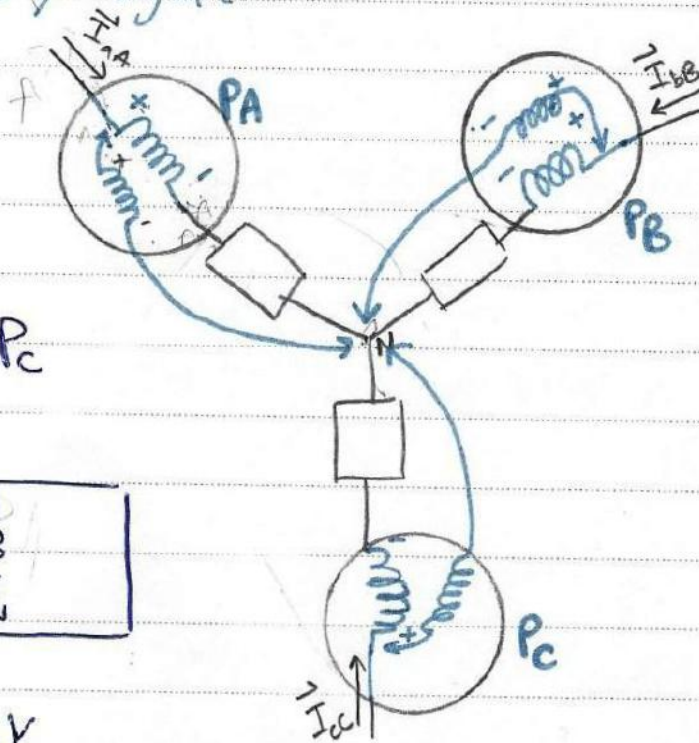 I_aA
P_A
I_bB
P_B
P_C
N
P_C
I_cC